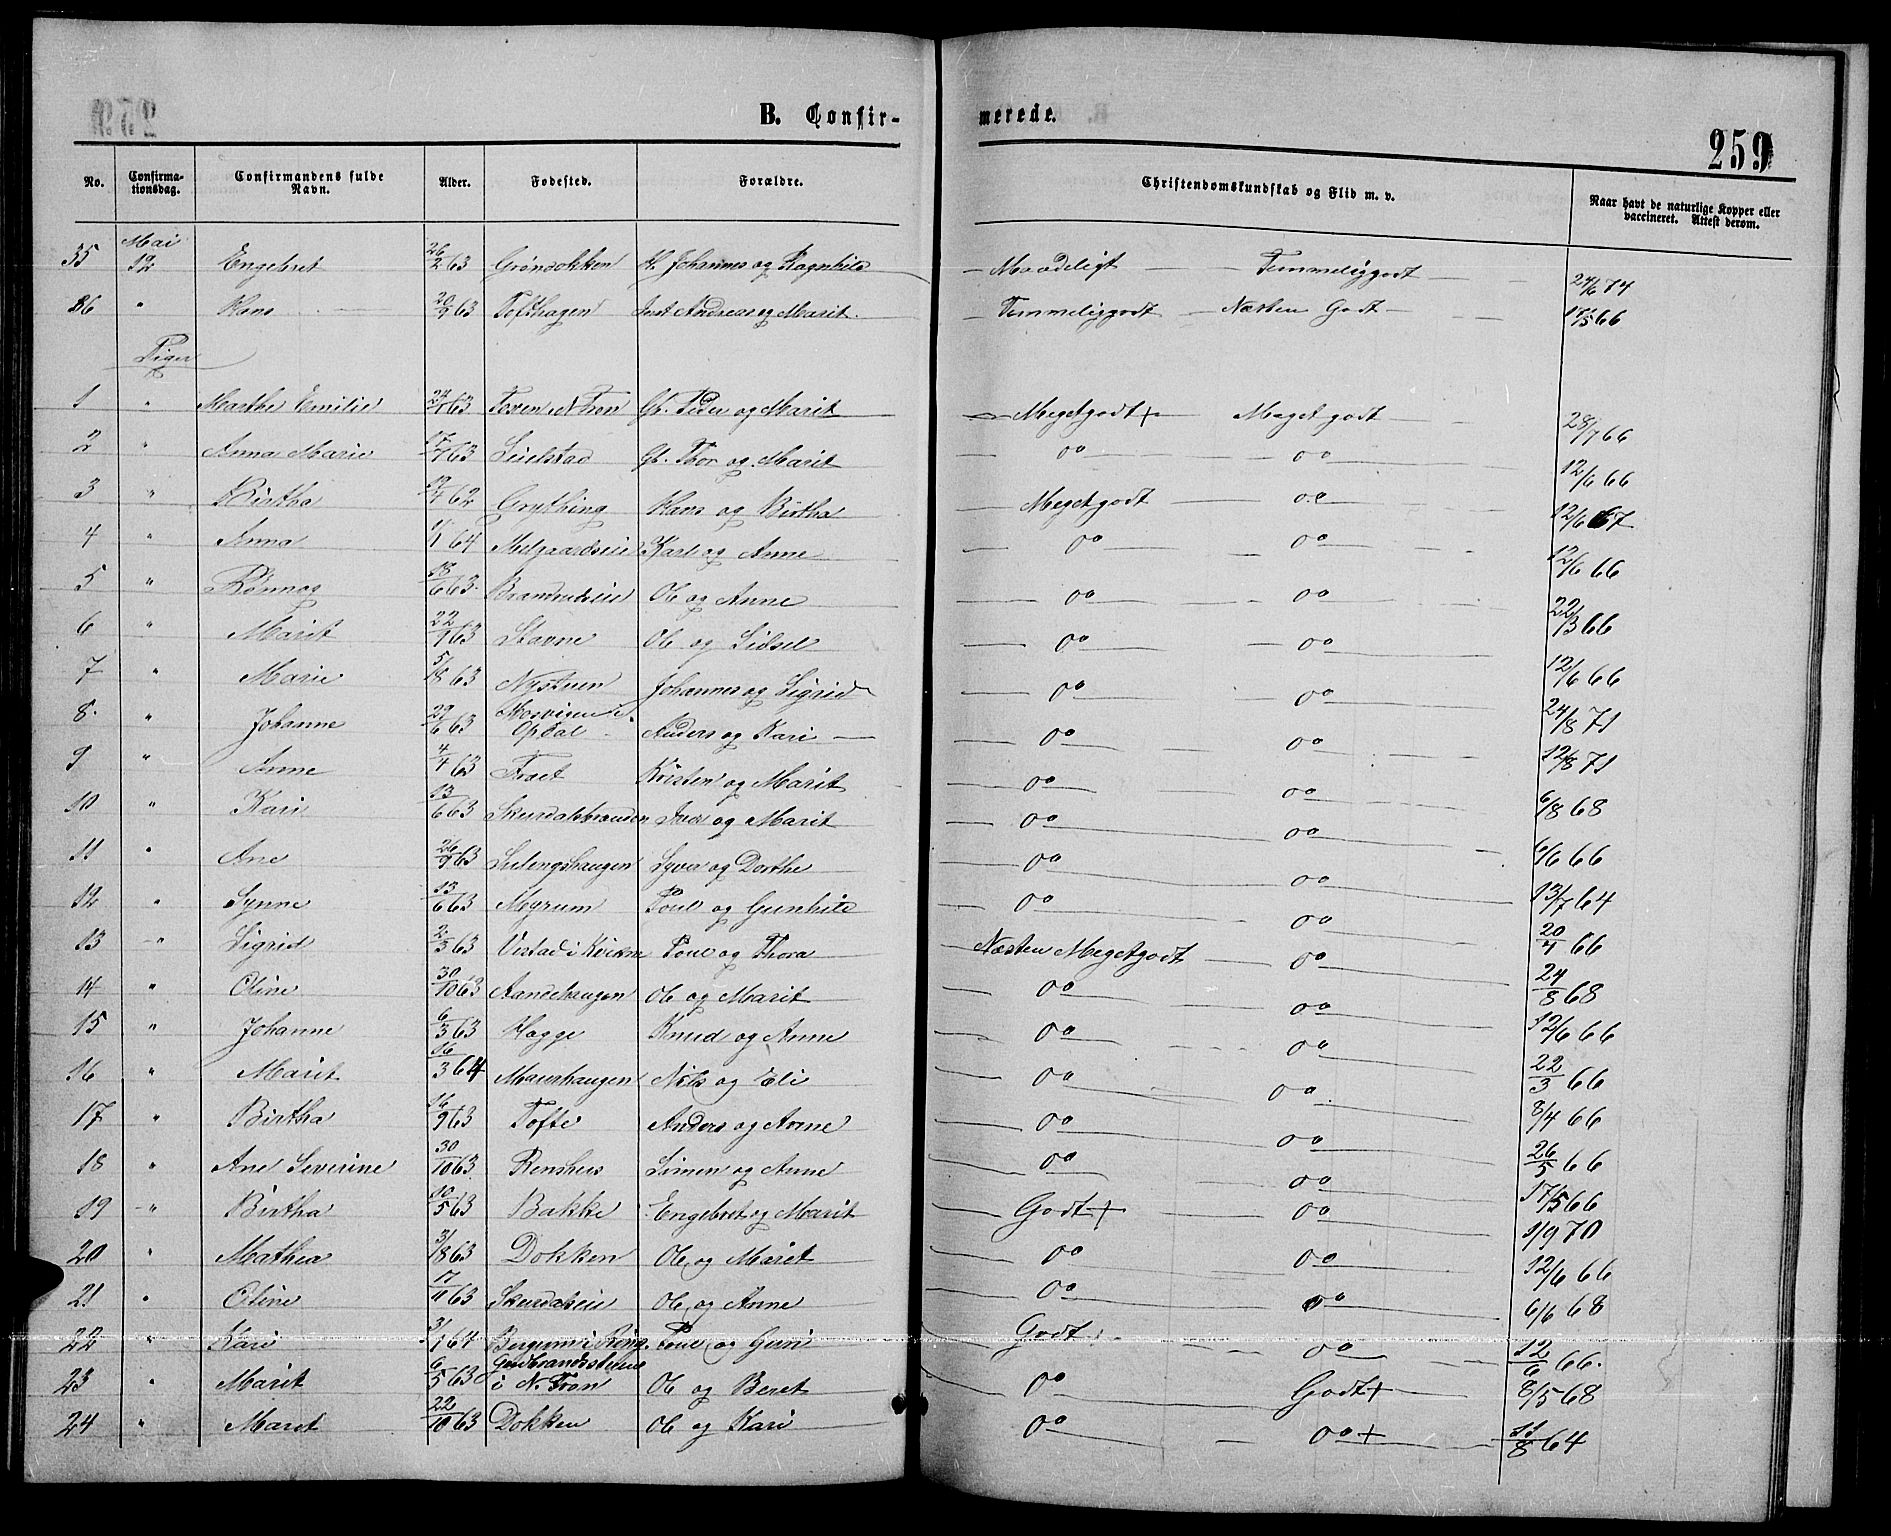 B. Confir-
merede.
259
No.
Confirma-
tionsdag.
Confirmandens fulde
Navn.
Alder.
Fødested.
Forældre.
Christendomskundskab og Flid m. v.
Naar havt de naturlige Kopper eller
vaccineret. Attest derom.
Mai
35 12 Engebret 26/2 63 Grøndokken Johannes og Ragnhild — Maadeligt — Temmeliggodt — 24/6 74
36 " Hans 20/9 63 Tofthagen Andreas og Marit — Temmeliggodt — Næsten Godt — 17/5 66
Piger
1 " Marthe Emilie 63 Gb. Peder og Marit — Megetgodt + Meget godt 28/7 66
2 " Anna Marie 63 Gb. Thor og Marit — do — do — 12/6 66
3 " Birtha 62 Grything Hans og Birtha Megetgodt — do — 12/6 67
4 " Anna 1/1 64 Melgaardseie Karl og Anne — do — do — 12/6 66
5 " Rønnog 18/6 63 Brandrudseie Ole og Anne — do — do — 22/3 66
6 " Marit 63 Stavne Ole og Sidsel — do — do — 12/6 66
7 " Marie 63 Nystuen Johannes og Sigrid — do — do — 24/8 71
8 " Johanne 63 Næsvigen i
Opdal Anders og Kari — do — do — 12/8 71
9 " Anne 4/4 63 Kristen og Marit — do — do — 6/8 68
10 " Kari 13/6 63 Skurdalsbranden Iver og Marit — do — do — 6/6 66
11 " Ane 26/9 63 Syver og Dorthe — do — do — 13/7 64
12 " Synne 13/6 63 Myrum Poul og Gunhild — do — do — 20/4 66
13 " Sigrid 2/3 63 Vistad i Kvikne Poul og Thora Næsten Megetgodt — do — 24/8 68
14 " Oline 30/10 63 Aandehaugen Ole og Marit — do — do — 12/6 66
15 " Johanne 6/3 63 Hagge Knud og Anne — do — do — 22/3 66
16 " Marit 16/3 64 Maurhaugen Nils og Eli — do — do — 8/4 66
17 " Birtha 16/9 63 Tofte Anders og Anne — do — do — 26/5 66
18 " Ane Severine 30/10 63 Renshus Simen og Anne — do — do — 17/5 66
19 " Birtha 10/5 63 Bakke Engebret og Marit Godt + — do — 1/9 70
20 " Mathea 63 Dokken Ole og Marit — do — do — 12/6 66
21 " Oline 17/11 63 Skurdalseie Ole og Anne — do — do — 6/6 68
22 " Kari 3/1 64 Bergum i Ring. Poul og Guri Godt — do — 12/6 66.
23 " Marit 6/5 63 Gudbrandsstuen
i N. Fron Ole og Beret — do — Godt + — 8/5 68
24 " Marit 22/10 63 Dokken Ole og Kari — do — do + — 11/8 64